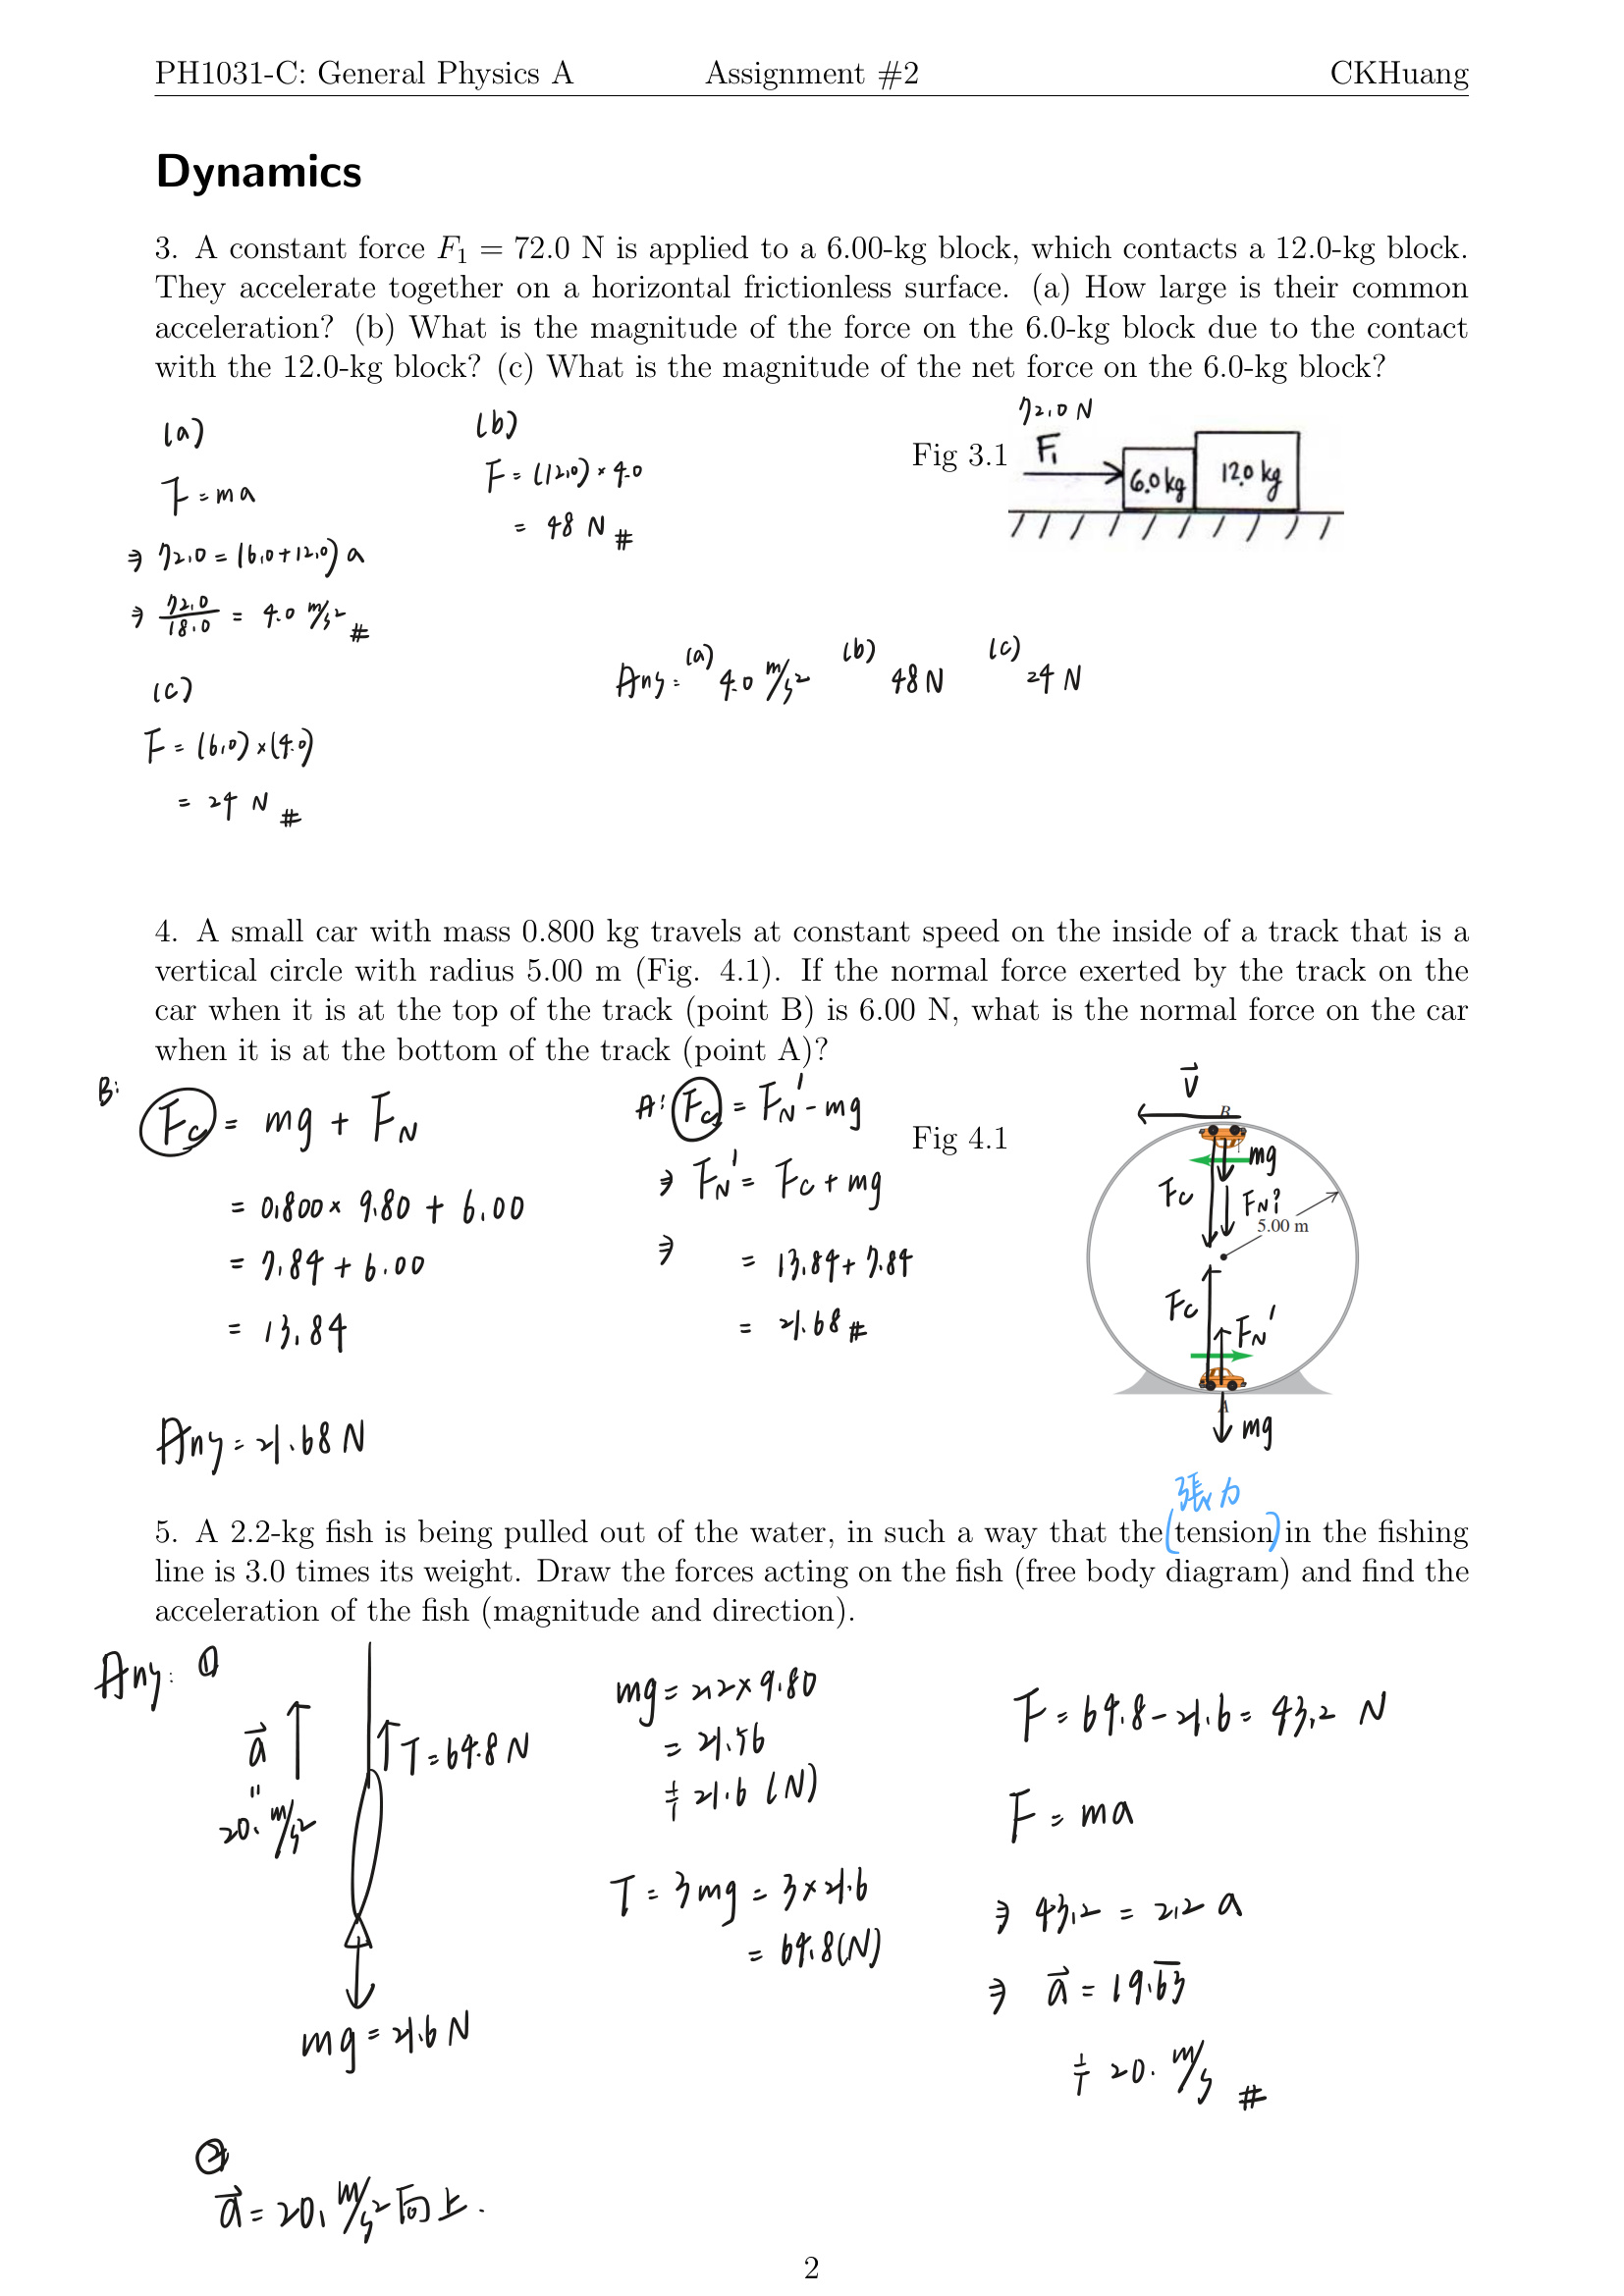 PH1031-C: General Physics A Assignment #2 CKHuang
Dynamics
3. A constant force F₁ = 72.0 N is applied to a 6.00-kg block, which contacts a 12.0-kg block.
They accelerate together on a horizontal frictionless surface. (a) How large is their common
acceleration? (b) What is the magnitude of the force on the 6.0-kg block due to the contact
with the 12.0-kg block? (c) What is the magnitude of the net force on the 6.0-kg block?
(a)
F = ma
⇒ 72.0 = (6.0+12.0) a
⇒ 72.0/18.0 = 4.0 m/s² #
(b)
F = (12.0) × 4.0
= 48 N #
Fig 3.1
72.0 N
F₁
6.0 kg
12.0 kg
(c)
F = (6.0)×(4.0)
= 24 N #
Ans: (a) 4.0 m/s² (b) 48 N (c) 24 N
4. A small car with mass 0.800 kg travels at constant speed on the inside of a track that is a
vertical circle with radius 5.00 m (Fig. 4.1). If the normal force exerted by the track on the
car when it is at the top of the track (point B) is 6.00 N, what is the normal force on the car
when it is at the bottom of the track (point A)?
B:
Fc = mg + FN
= 0.800 × 9.80 + 6.00
= 7.84 + 6.00
= 13.84
A: Fc = FN' - mg
⇒ FN' = Fc + mg
⇒ = 13.84 + 7.84
= 21.68 #
Fig 4.1
v⃗
B
mg
Fc
FN?
5.00 m
Fc
FN'
A
mg
Ans = 21.68 N
張力
5. A 2.2-kg fish is being pulled out of the water, in such a way that the (tension) in the fishing
line is 3.0 times its weight. Draw the forces acting on the fish (free body diagram) and find the
acceleration of the fish (magnitude and direction).
Ans: ①
a⃗
"
20. m/s²
T = 64.8 N
mg = 21.6 N
mg = 2.2 × 9.80
= 21.56
≑ 21.6 (N)
T = 3mg = 3 × 21.6
= 64.8 (N)
F = 64.8 - 21.6 = 43.2 N
F = ma
⇒ 43.2 = 2.2 a
⇒ a⃗ = 19.6̅3̅
≑ 20. m/s #
②
a⃗ = 20. m/s² 向上.
2